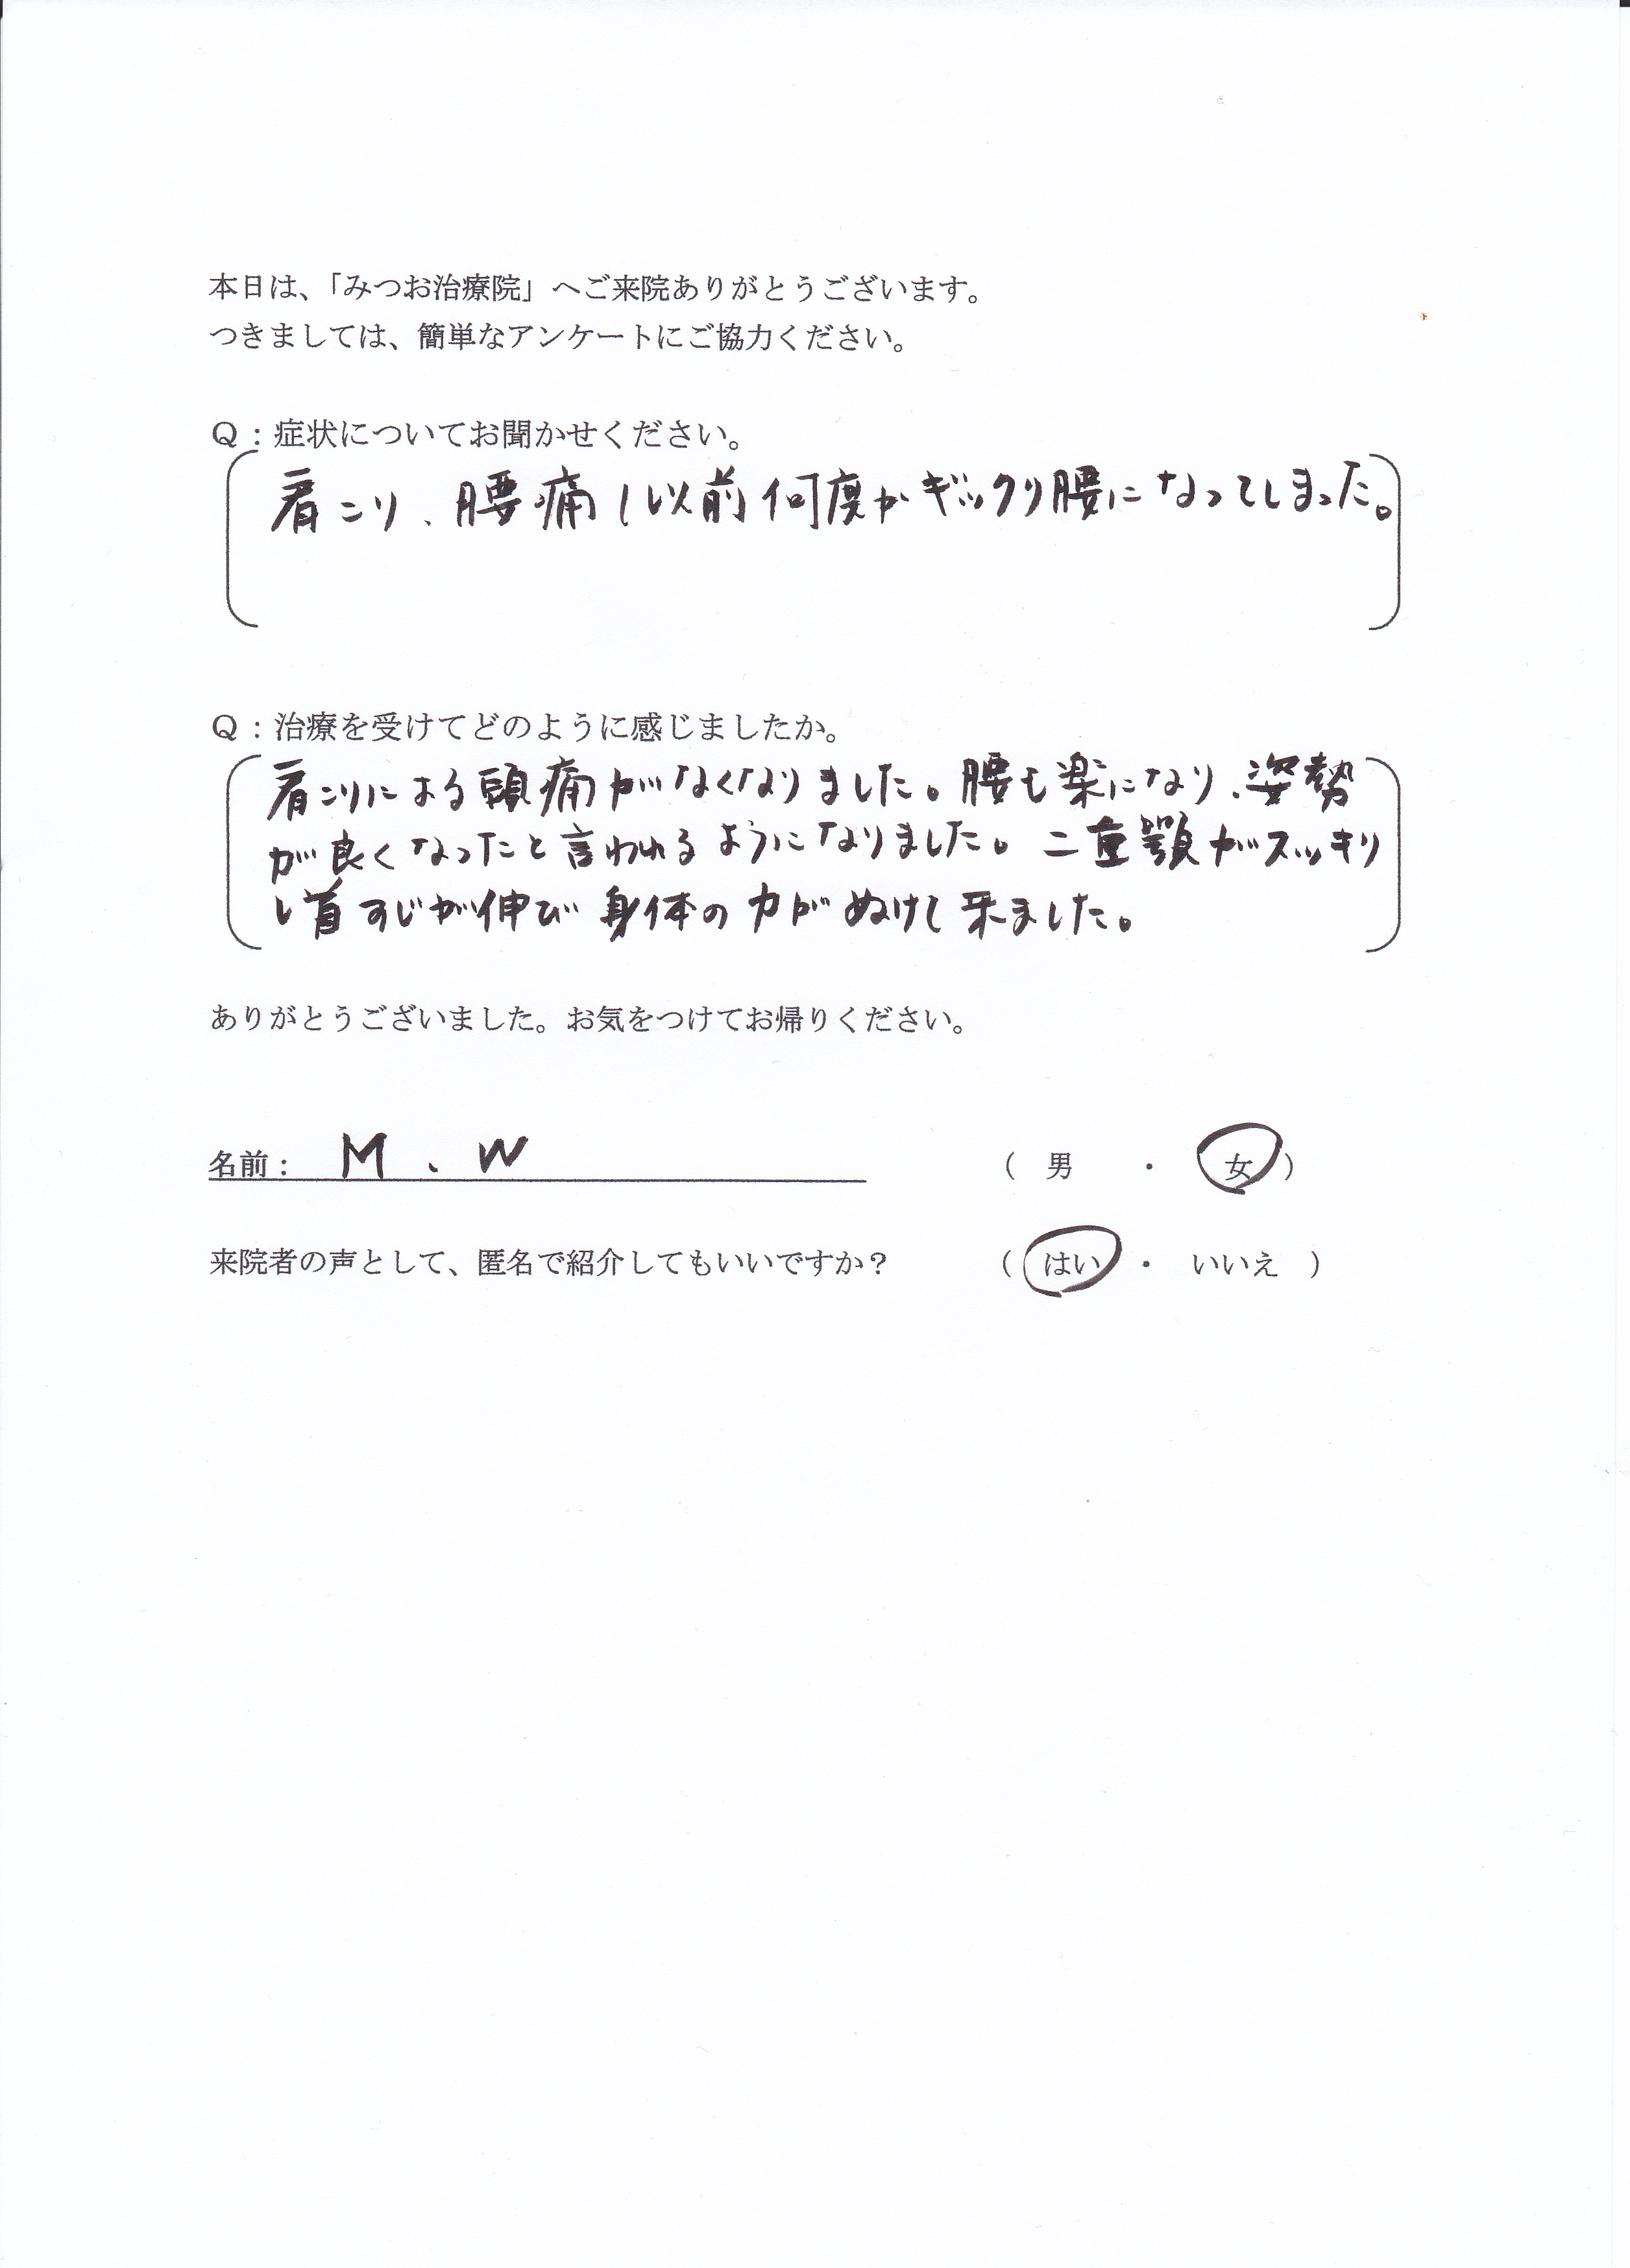 本日は、「みつお治療院」へご来院ありがとうございます。
つきましては、簡単なアンケートにご協力ください。
Q:症状についてお聞かせください。
肩こり、腰痛(以前何度かギックリ腰になってしまった。
Q:治療を受けてどのように感じましたか。
肩こりによる頭痛がなくなりました。腰も楽になり、姿勢
が良くなったと言われるようになりました。二重顎がスッキリ
し首すじが伸び身体の力がぬけて来ました。
ありがとうございました。お気をつけてお帰りください。
名前: M、W (男・女)
来院者の声として、匿名で紹介してもいいですか? (はい・いいえ)